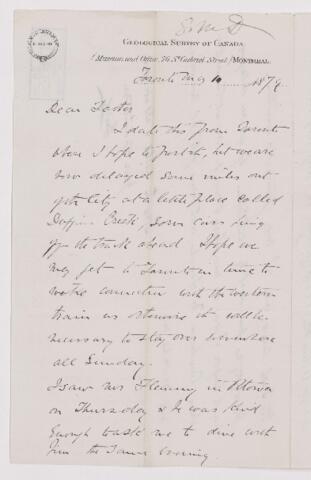 G. M. D
GEOLOGICAL SURVEY OF CANADA
(Museum and Office, 76 St. Gabriel Street) MONTREAL.
Toronto May 10 1879.
Dear Father
I date this from Toronto
where I hope to post it, but we are
now delayed some miles out
of the City at a little place called
Duffins Creek, some cars being
off the track ahead. I hope we
may get to Toronto in time to
make connection with the western
train as otherwise it will be
necessary to stay over somewhere
all Sunday.
I saw Mr Fleming in Ottawa
on Thursday & he was kind
enough to ask me to dine with
him the same evening.